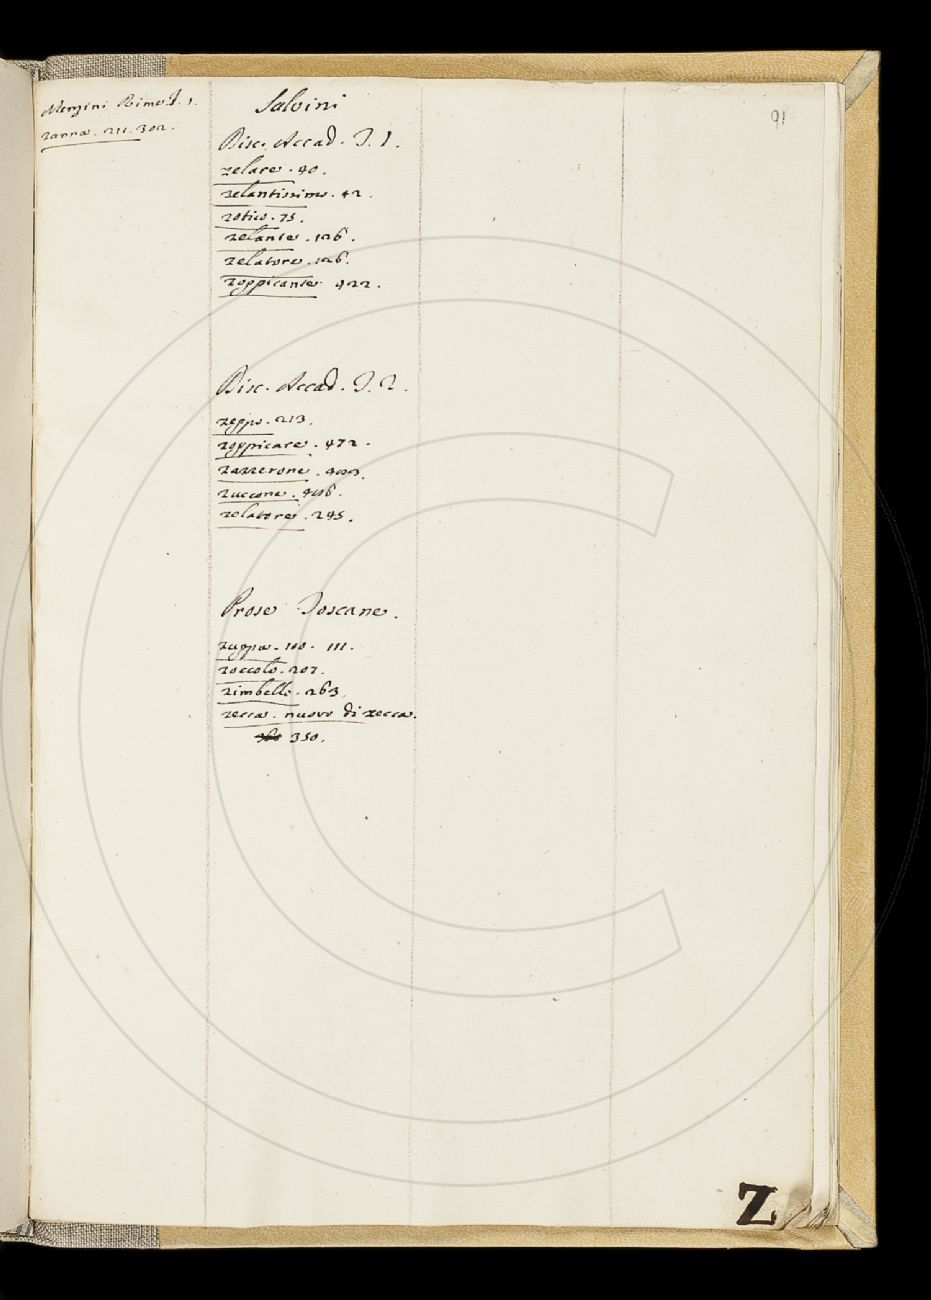 Menzini Rime T. 1.
zanna. 211. 302.
Salvini
Disc. Accad. T. 1.
zelare. 40.
zelantissimo. 42.
zotico. 75.
zelante. 126.
zelatore. 126.
zoppicante 422.
Disc. Accad. T. 2.
zeppo. 213.
zoppicare. 472.
zazzerone.
zuccone. 406.
zelatore. 245.
Prose Toscane.
zuppa. 110. 111.
zoccolo. 207.
zimbello. 263.
zecca. nuovo di zecca.
350.
91
Z